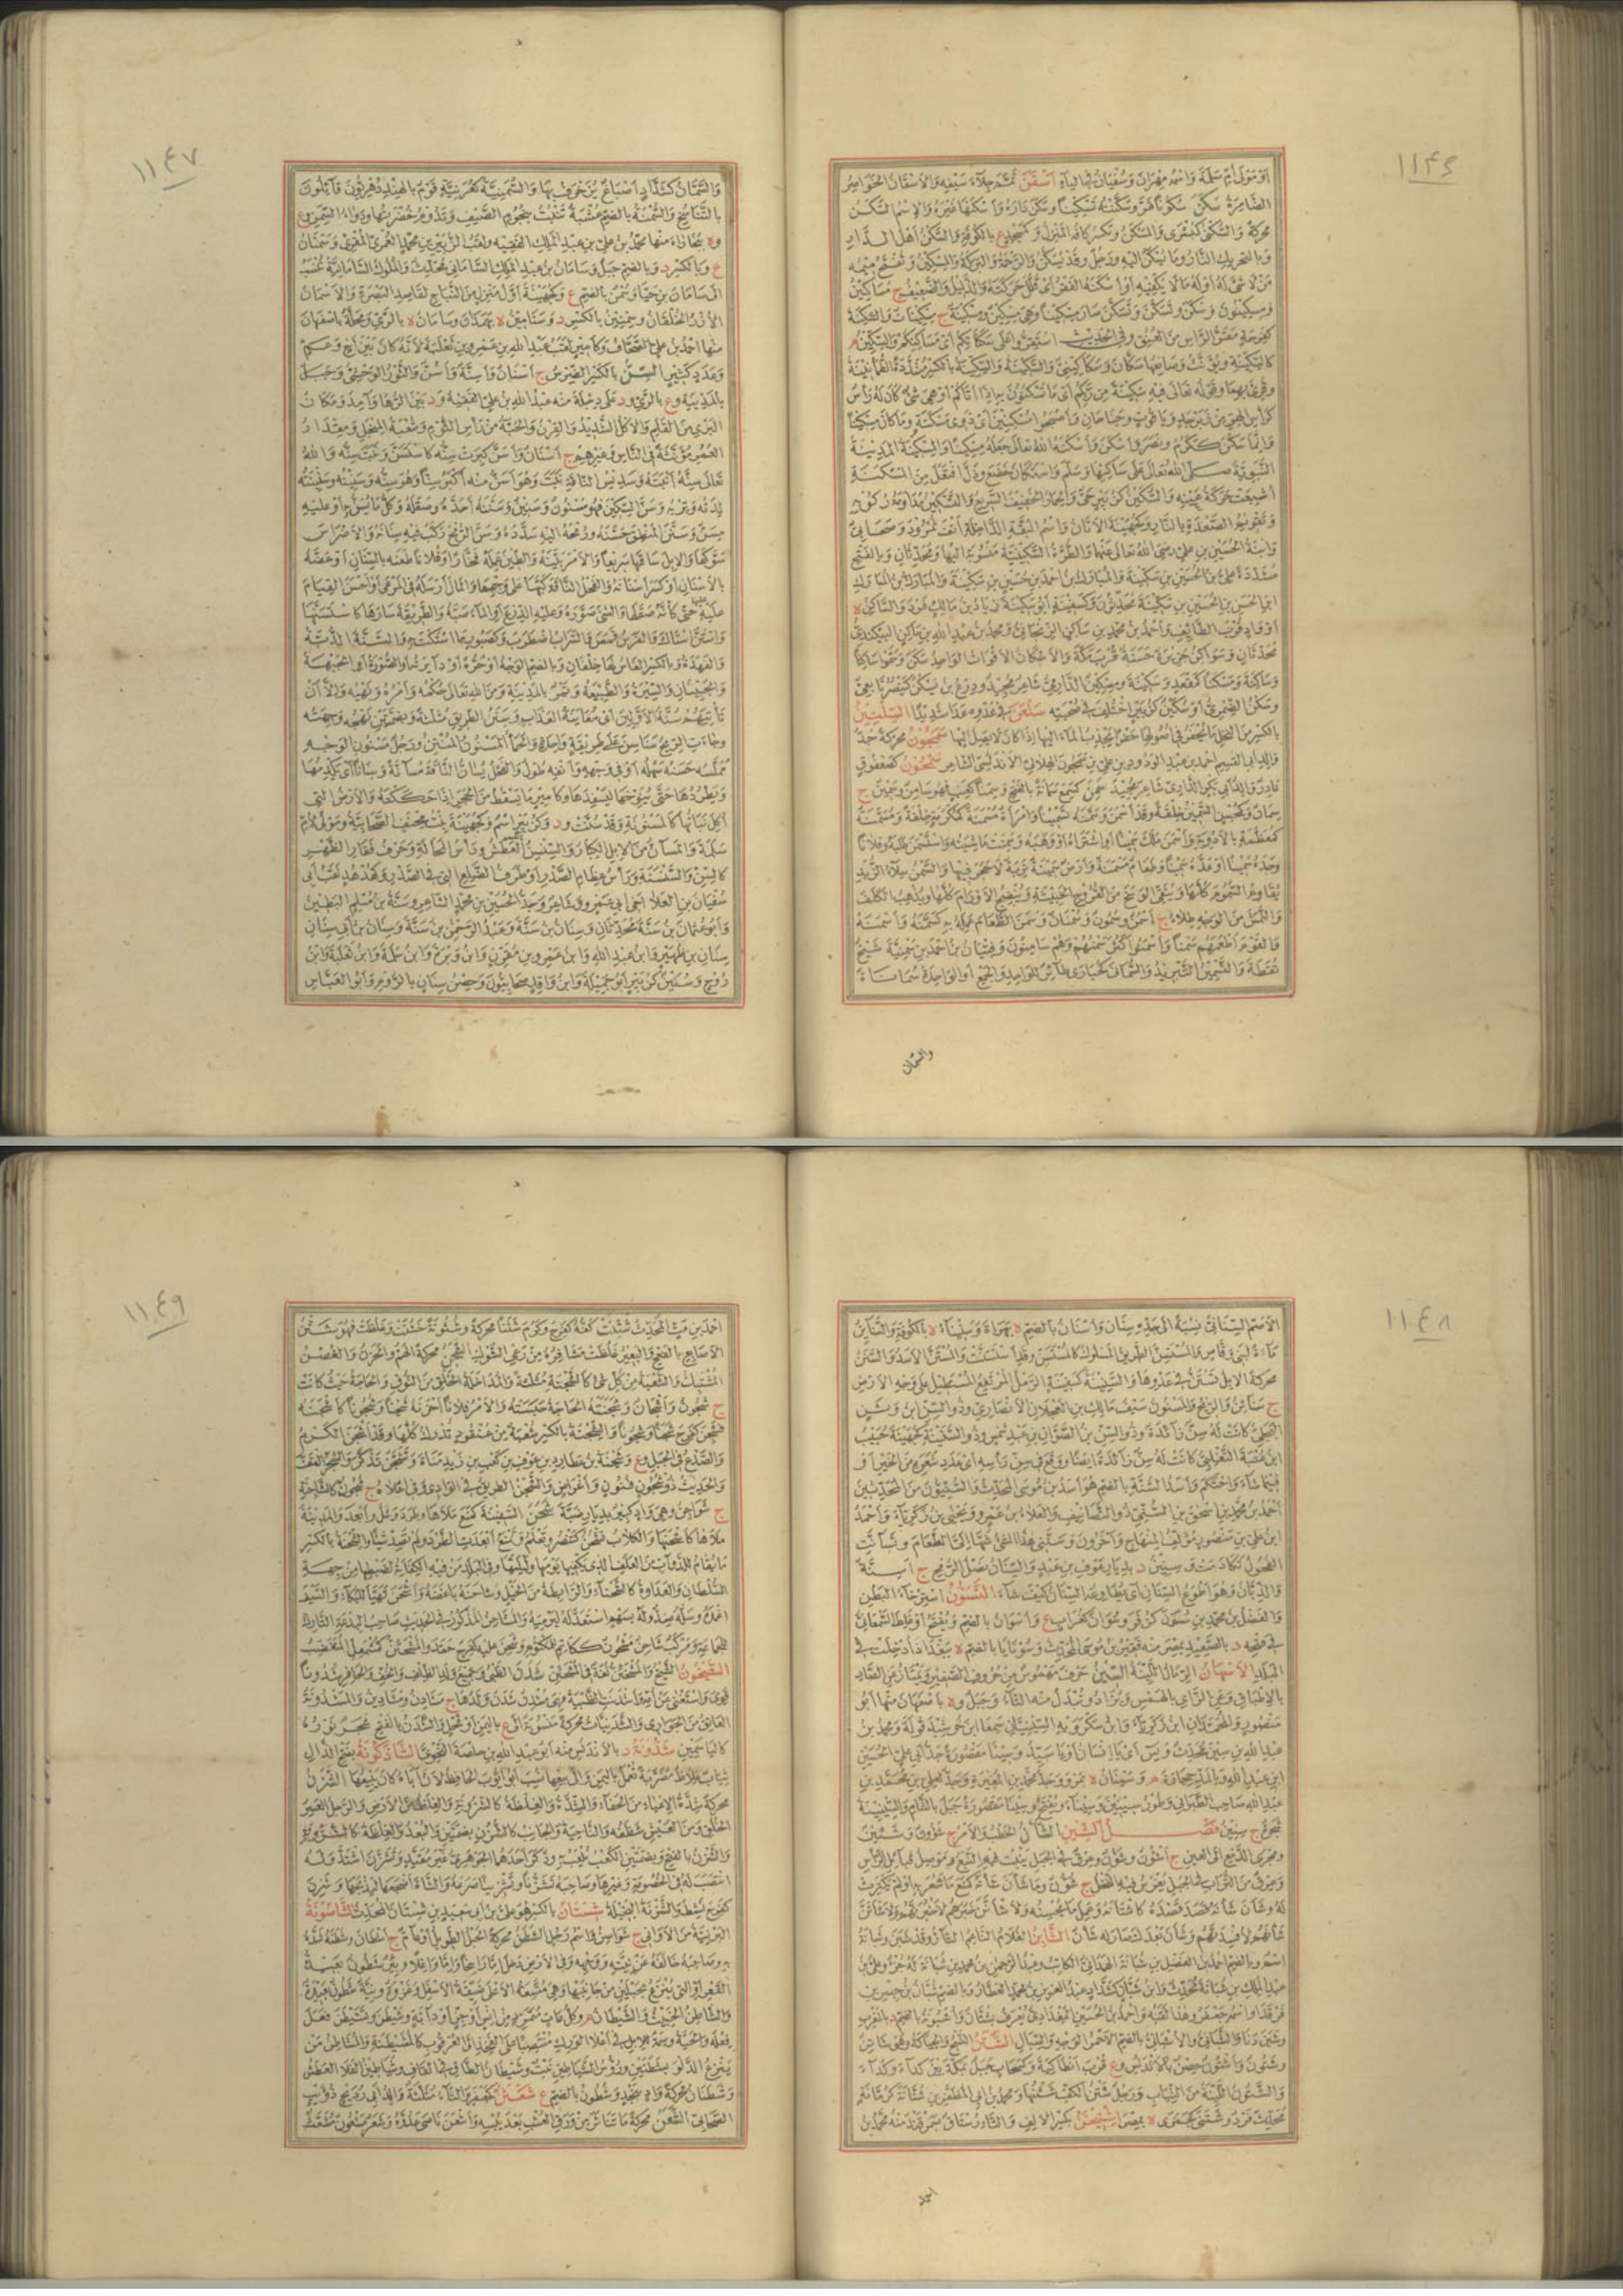 ١١٤٦
او مولى ام سلمة واسمه مهران وسفينة اسفن السفن والاسقان الخواصر
الضامرة سكن سكونا قر وسكنته تسكينا وسكن داره واسكنها غيره والاسم السكن
محركة والسكنى كبشرى والمسكن وتكسر كافه المنزل وكمسجد ع بالكوفة والسكن اهل الدار
وبالتحريك النار وما يسكن اليه ورجل وقد يسكن والرحمة والبركة والمسكين وتفتح ميمه
من لا شىء له او له ما لا يكفيه او اسكنه الفقر اى قلل حركته والذليل والضعيف ج مساكين
ومسكينون وسكن وتسكن وتمسكن صار مسكينا وهى مسكين ومسكينة ج مسكينات والسكنة
كفرحة مقر الراس من العنق وفى الحديث استقروا على سكناتكم اى مساكنكم والسكين م
كالسكينة ويؤنث وصانعها سكان وسكاكينى والسكينة والسكينة بالكسر مشددة الطمانينة
وقرئ بهما وقوله تعالى فيه سكينة من ربكم اى ما تسكنون به اذا اتاكم او هى شىء كان له راس
كراس الهر من زبرجد وياقوت وجناحان واصبحوا مسكينين اى ذوى مسكنة وما كان مسكينا
وانما سكن ككرم ونصر واسكن واسكنه الله تعالى جعله مسكينا والمسكينة المدينة
النبوية صلى الله تعالى على ساكنها وسلم واستكان خضع وذل افتعل من المسكنة
اشبعت حركة عينه والسكين كزبير حى والحمار الخفيف السريع والتسكين مداومة ركوبه
وتقويم الصعدة بالنار وكجهينة الاتان واسم البقة الداخلة انف نمرود وصحابى
وابنة الحسين بن على رضى الله تعالى عنهما والطرة السكينية منسوبة اليها ومحدثان وبالفتح
مشددة على بن الحسين بن سكينة والمبارك بن احمد بن حسين بن سكينة والمبارك بن المبارك
ابن الحسين بن الحسين بن سكينة محدثون وكسفينة ابو سكينة زياد بن مالك فرد والساكن ة
او واد قرب الطائف واحمد بن محمد بن ساكن الزنجانى ومحمد بن عبد الله بن ساكن البيكندى
محدثان وسواكن جزيرة حسنة قرب مكة والاسكان الاقوات الواحد سكن وسموا ساكنا
وساكنة ومسكنا كمقعد وسكينة ومسكين الدارمى شاعر مجيد ودرع بن يسكن كينصر تابعى
وسكن الضمرى او سكين كزبير اختلف فى صحبته سلعن فى عدوه عدا شديدا السلتين
بالكسر من النخل ما يحفر فى اصولها حفر تجذب الماء اليها اذا كان لا يصل اليها سمجون محركة جد
والد ابى القاسم احمد بن عبد الودود بن على بن سمجون الهلالى الاندلسى الشاعر سمحون كصعفوق
سمن كسمع سمانة بالفتح وسمنا كعنب فهو سامن وسمين ج
سمان وكمحسن السمين خلقة وقد اسمن وسمنه تسمينا وامراة مسمنة كمكرمة خلقة ومسمنة
كمعظمة بالادوية واسمن ملك سمينا او اشتراه او وهبه وسمنت ماشيته واستسمن طلبه وفلانا
وجده سمينا او عده سمينا وطعام مسمنة وارض سمينة تربة لا حجر فيها والسمن سلاء الزبد
يقاوم السموم كلها وينقى الوسخ من القروح الخبيثة وينضج الاورام كلها ويذهب الكلف
والنمش من الوجه طلاء ج اسمن وسمون وسمنان وسمن الطعام عمله به كسمنه واسمنه
والقوم اطعمهم سمنا واسمنوا كثر سمنهم وهم سامنون وفتيان بن احمد بن سمنية شيخ
نقطة والتسمين التبريد والسمانى كحبارى طائر للواحد والجمع او الواحدة سماناة
والسمان
١١٤٧
والسمان كشداد اصباغ يزخرف بها والسمنية كعرنية قوم بالهند دهريون قائلون
بالتناسخ والسمنة بالضم عشبة تنبت بنجوم الصيف وتدوم خضرتها ودواء السمن وع
وة ببخاراء منها محمد بن على بن عبد الملك الفقيه ولقب الزبير بن محمد العمرى المقرئ وسمنان
ع وبالكسر د وبالضم جبل وسامان بن عبد الملك السامانى محدث والملوك السامانية تنسب
الى سامان بن حيا وسمن بالضم ع وكجهينة اول منزل من النباج لقاصد البصرة والاسمان
الازر الخلقان وسمنين بالكسر د وسامين ة بهمدان وسامان ة بالرى ومحلة باصفهان
منها احمد بن على الصحاف وكامير لقب عبد الله بن عمرو بن ثعلبة لانه كان بين اخ وعم
وعدد كثير السن بالكسر الضرس ج اسنان واسنة واسن والثور الوحشى وجبل
بالمدينة وع بالرى ود على دجلة منه عبد الله بن على الفقيه ود بين الرها وآمد ومكان
البرى من القلم والاكل الشديد والقرن والحبة من راس الثوم وشعبة المنجل ومقدار
العمر مؤنثة فى الناس وغيرهم ج اسنان واسن كبرت سنه كاستسن ونبت سنه والله
تعالى سنه انبته وسديس الناقة نبت وهو اسن منه اكبر سنا وهو سنه وسنينه وسنينته
لدته وتربه وسن السكين فهو مسنون وسنين وسننه احده وصقله وكل ما يسن به او عليه
مسن وسنن المنطق حسنه ورمحه اليه سدده وسن الرمح ركب فيه سنانه والاضراس
سوكها والابل ساقها سريعا والامر بينه والطين عمله فخارا وفلانا طعنه بالسنان او عضه
بالاسنان او كسر اسنانه والفحل الناقة كبها على وجهها والمال ارسله فى الرعى او احسن القيام
عليه حتى كانه صقله والشىء صوره وعليه الدرع او الماء صبه والطريقة سارها كاستسنها
واستن استاك والفرس قمص والسراب اضطرب وكصبور ما استكت به والسنة الدبة
والفهدة وبالكسر الفاس لها خلفان وبالضم الوجه او حره او دائرته او الصورة او الجبهة
والجبينان والسيرة والطبيعة وتمر بالمدينة ومن الله تعالى حكمه وامره ونهيه والا ان
تاتيهم سنة الاولين اى معاينة العذاب وسنن الطريق مثلثة وبضمتين نهجه وجهته
وجاءت الريح سناسن على طريقة واحدة والحمأ المسنون المنتن ورجل مسنون الوجه
مملسه حسنه سهله او فى وجهه وانفه طول والفحل يسان الناقة مسانة وسنانا اى يكدمها
ويطردها حتى ينوخها ليسفدها وكامير ما يسقط من الحجر اذا حككته والارض التى
اكل نباتها كالمسنونة وقد سنت ود وكزبير اسم وكجهينة بنت مخنف الصحابية ومولى لام
سلمة والمسان من الابل الكبار والسنسن العطش وراس المحالة وحرف فقار الظهر
كالسن والسنسنة وراس عظام الصدر او طرف الضلع التى فى الصدر وكهدهد لقب ابى
سفيان بن العلاء اخى ابى عمرو وشاعر وجد الحسين بن محمد الشاعر وسنة بن مسلم البطين
وابو عثمان بن سنة محدثان وسنان بن سنة وعبد الرحمن بن سنة وسنان بن ابى سنان
سنان بن ظهير وابن عبد الله وابن عمرو بن مقرن وابن وبرة وابن سلمة وابن ثعلبة وابن
روح وسنين كزبير ابو جميلة وابن واقد صحابيون وحصن سنان بالروم وابو العباس
١١٤٨
الاصم السنانى نسبة الى جده سنان واسنان بالضم ة بهراة وسنيناء ة بالكوفة والسنائن
ماءة لبنى وقاص والمستسن الطريق المسلوك كالمستسن وقد استسنت والمستن الاسد والسنن
محركة الابل تستن فى عدوها والسنينة كسفينة الرمل المرتفع المستطيل على وجه الارض
ج سنائن والريح والمسنون سيف مالك بن العجلان الانصارى وذو السن ابن وثن
البجلى كانت له سن زائدة وذو السن بن الصوان بن عبد شمس وذو السنينة كجهينة حبيب
ابن عتبة الثعلبى كانت له سن زائدة ايضا ووقع فى سن راسه اى عدد شعره من الخير او
فيما شاء واحتكم واسد السنة بالضم هو اسد بن موسى المحدث والسنيون من المحدثين
احمد بن محمد بن اسحق بن السنى ذو التصانيف والعلاء بن عمرو ويحيى بن زكرياء واحمد
ابن على بن منصور مؤلف المنهاج وآخرون وسننى هذا الشىء شهى الى الطعام وتسانت
الفحول تكادمت وسنين د بديار عوف بن عبد والسنان نصل الرمح ج اسنة
والذبان وهو اطوع السنان اى يطاوعه السنان كيف شاء التسون استرخاء البطن
والفضل بن محمد بن سون واسوان بالضم ويفتح او غلط السمعانى
فى فتحه د بالصعيد بمصر منه فقير بن موسى المحدث وسونايا بالضم ة ببغداد ادخلت فى
البلد الاسهان الرمال اللينة السين حرف مهموس من حروف الصفير ويمتاز عن الصاد
بالاطباق وعن الزاى بالهمس ويزاد وتبدل منه التاء وجبل وة باصبهان منها ابو
منصور المحمدان ابن زكرياء وابن سكرويه السينيان سمعا ابن خورشيد قوله ومحمد بن
عبد الله بن سين محدث ويس اى يا انسان او يا سيد وسينا مقصورة جد ابى على الحسين
ابن عبد الله وبالمد حجارة م وسينان ة بمرو وجد محمد بن المغيرة وجد لعلى بن محمد بن
عبد الله صاحب الطبرانى وطور سينين وسيناء ويفتح وسينا مقصورة جبل بالشام والسينينة
شجرة ج سينين فصل الشين الشان الخطب والامر ج شؤون وشئين
ومجرى الدمع الى العين ج اشؤن وشؤن وعرق فى الجبل ينبت فيه النبع وموصل قبائل الراس
وعرق من التراب فى الجبل يغرس فيه النخل ج شؤون وما شان شانه كمنع ما شعر به او لم يكترث
له وشان شانه قصد قصده كاشتانه وعمل ما يحسنه ولاشانن خبرهم لاخبرنهم ولاشانن
شانهم لافسدنهم وشان بعدك صار له شان الشابن الغلام التامر التار وقد شبن وشبابة
اسم وبالضم احمد بن الفضل بن شبانة الهمذانى الكاتب وعبد الرحمن بن محمد بن شبانة له جزء وعلى بن
عبد الملك بن شبانة محدث وابن شبان كشداد عبد العزيز بن محمد العطار وبالضم شبان بن جسر بن
فرقد او اسمه جعفر وهذا لقبه واحمد بن الحسين البغدادى يعرف بشبان واشبونة بالضم د بالمغرب
وشبن دنا والشبانى والاشبانى بالضم الاحمر الوجه والسبال الشتن النسج والحياكة وهو شاتن
وشتون واشتون حصن بالاندلس وع قرب انطاكية وكسحاب جبل بمكة بين كداء وكدى
والشتون اللينة من الثياب ورجل شتن الكف شثنها ومحمد بن ابى المظفر بن شتانة كرمانة
محدث فرد وشتنى كجمزى ة بمصر اشتيخن بكسر الالف والتاء رستاق بسمرقند منه محمد بن
احمد
١١٤٩
احمد بن مت المحدث شثنت كفه كفرح وكرم شثنا محركة وشثونة خشنت وغلظت فهو شثن
الاصابع بالفتح والبعير غلظت مشافره من رعى الشوك الشجن محركة الهم والحزن والغصن
المشتبك والشعبة من كل شىء كالشجنة مثلثة والمتداخلة الخلق من النوق والحاجة حيث كانت
ج شجون واشجان وشجنته الحاجة حبسته والامر فلانا احزنه شجنا وشجونا كاشجنه
فشجن كفرح شجنا وشجونا والشجنة بالكسر شعبة من عنقود تدرك كلها وقد اشجن الكرم
والصدع فى الجبل وع وشجنة بن عطارد بن عوف بن كعب بن زيد مناة وتشجن تذكر والشجر التف
والحديث ذو شجون فنون واغراض والشجن الطريق فى الوادى او فى اعلاه ج شجون كالشاجنة
ج شواجن وهى واد كبير بديار ضبة شحن السفينة كمنع ملأها وطرد وشل وابعد والمدينة
ملأها كاشحنها والكلاب تشحن كتنصر وتعلم وتمنع ابعدت الطرد ولم تصد شيئا والشحنة بالكسر
ما يقام للدواب من العلف الذى يكفيها يومها وليلتها وفى البلد من فيه الكفاية لضبطها من جهة
السلطان والعداوة كالشحناء والرابطة من الخيل وشاحنه باغضه واشحن تهيا للبكاء والسيف
اغمده وسله ضد وله بسهم استعد له ليرميه والمشاحن المذكور فى الحديث صاحب البدعة التارك
للجماعة ومركب شاحن مشحون ككاتم للمكتوم وشحن عليه كفرح حقد والمشحئن كمشمعل المتغضب
الشيخون الشيخ والمشخئن لغة فى المشحئن شدن الظبى وجميع ولد الظلف والخف والحافر شدونا
قوى واستغنى عن امه واشدنت الظبية فهى مشدن شدن ولدها ج مشادن ومشادين والمشدونة
العاتق من الجوارى والشدنيات محركة منسوبة الى ع باليمن او فحل والشدن بالفتح شجر نوره
كالياسمين شذونة د بالاندلس منه ابو عبد الله بن خلصة النحوى الشاذكونة بفتح الذال
ثياب غلاظ مضربة تعمل باليمن والى بيعها نسب ابو ايوب الحافظ لان اباه كان يبيعها الشزن
محركة شدة الاعياء من الحفاء والشدة والغلظة كالشزونة والغلظ من الارض والرجل العسر
الخلق ومن العيش شظفه والناحية والجانب كالشزن بضمتين والبعد والغلظة كالشزونة
والشزن بالفتح وبضمتين الكعب يلعب به وذكر احدهما الجوهرى غير مقيد وتشزن اشتد وله
انتصب له فى الخصومة وغيرها وصاحبه تشزنا وتشزينا صرعه والشاة اضجعها ليذبحها وشزن
كفرح نشط والشزنة البخيلة ششتان بالكسر هو على بن ابى سعيد بن ششتان المحدث الشاصونة
البرنية من الاوانى ج شواصن واسم رجل الشطن محركة الحبل الطويل او عام ج اشطان وشطنه شده
به وصاحبه خالفه عن نيته ووجهه وفى الارض دخل اما راسخا واما واغلا وبئر شطون بعيدة
القعر او التى تنزع بحبلين من جانبيها وهى متسعة الاعلى ضيقة الاسفل وغزوة ونية شطون بعيدة
والشاطن الخبيث والشيطان م وكل عات متمرد من انس او جن او دابة وشيطن وتشيطن فعل
فعله والحية وسمة للابل فى اعلى الورك منتصبا على الفخذ الى العرقوب كالمشيطنة والمشاطن من
ينزع الدلو بشطنين ورؤس الشياطين نبت وشيطان الطاق وشياطين الفلا العطش
وشطنان محركة واد بنجد وشطون بالضم ع شغثن كجعفر والثاء مثلثة والد ابى رديح ذؤيب
الصحابى الشعن محركة ما تناثر من ورق العشب بعد يبسه واشعن ناصى عدوه وشعر مشعون مشعث